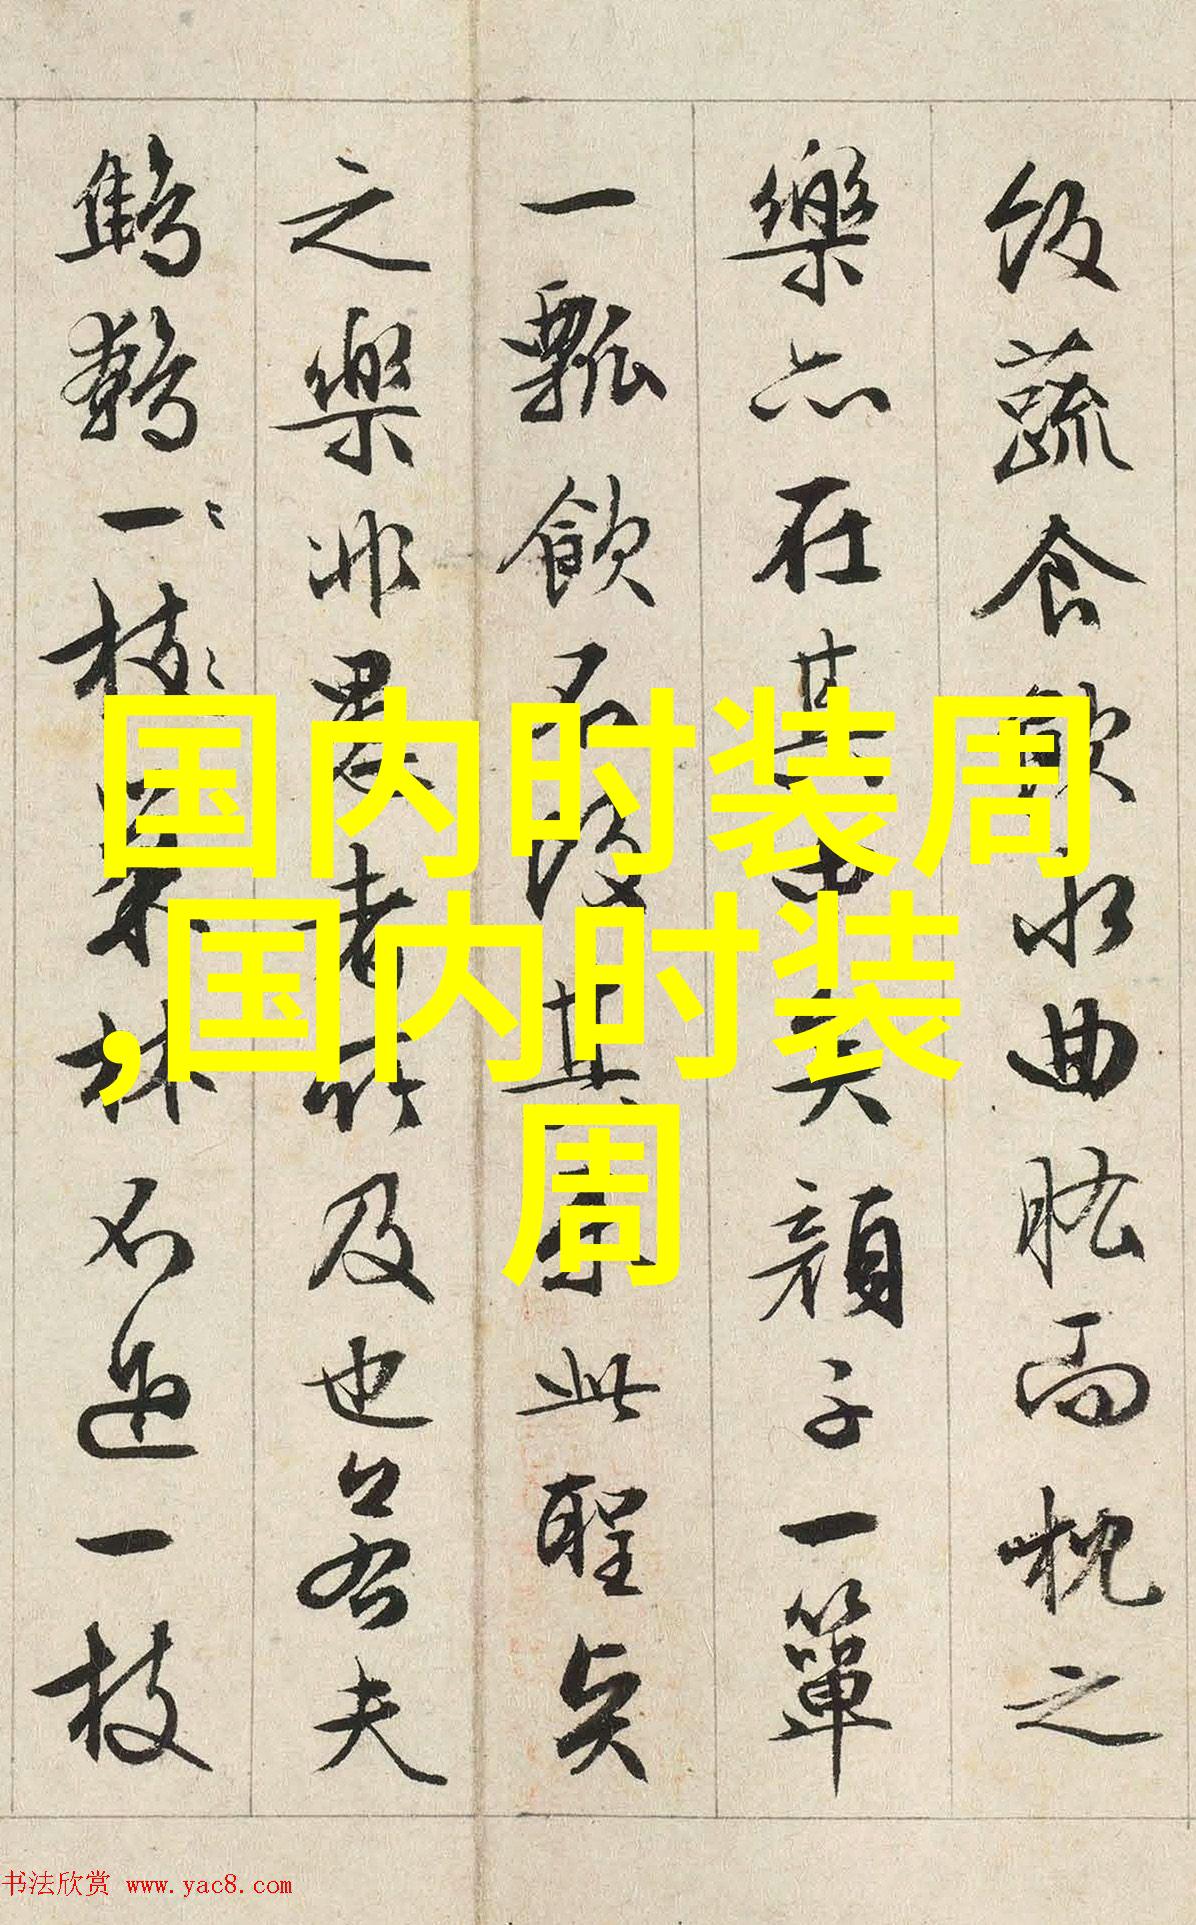 飯蔬食飲水曲肱而枕之
樂亦在其中矣顏子一簞
一瓢飲不改其樂此聖賢
之樂非愚者所及也若夫
鷦鷯一枝巢林不過一枝
国内时装周
,国内时装
周
书法欣赏 www.yac8.com